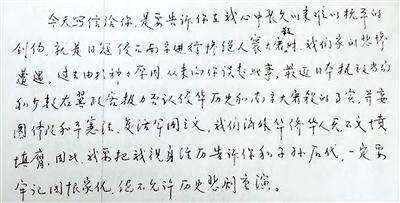 今天写信给你,是要告诉你在我心中长久以来难以抚平的
创伤,就是日寇侵占南京进行惨绝人寰大屠杀时,我们家的悲惨
遭遇。过去由于种种原因从未向你谈起此事,最近日本执政当局
和少数右翼政客极力否认侵华历史和南京大屠杀的事实,并妄
图修改和平宪法,复活军国主义,我们海外华侨华人无不义愤
填膺。因此我要把我亲身经历告诉你和子孙后代,一定要
牢记国恨家仇,绝不允许历史悲剧重演。